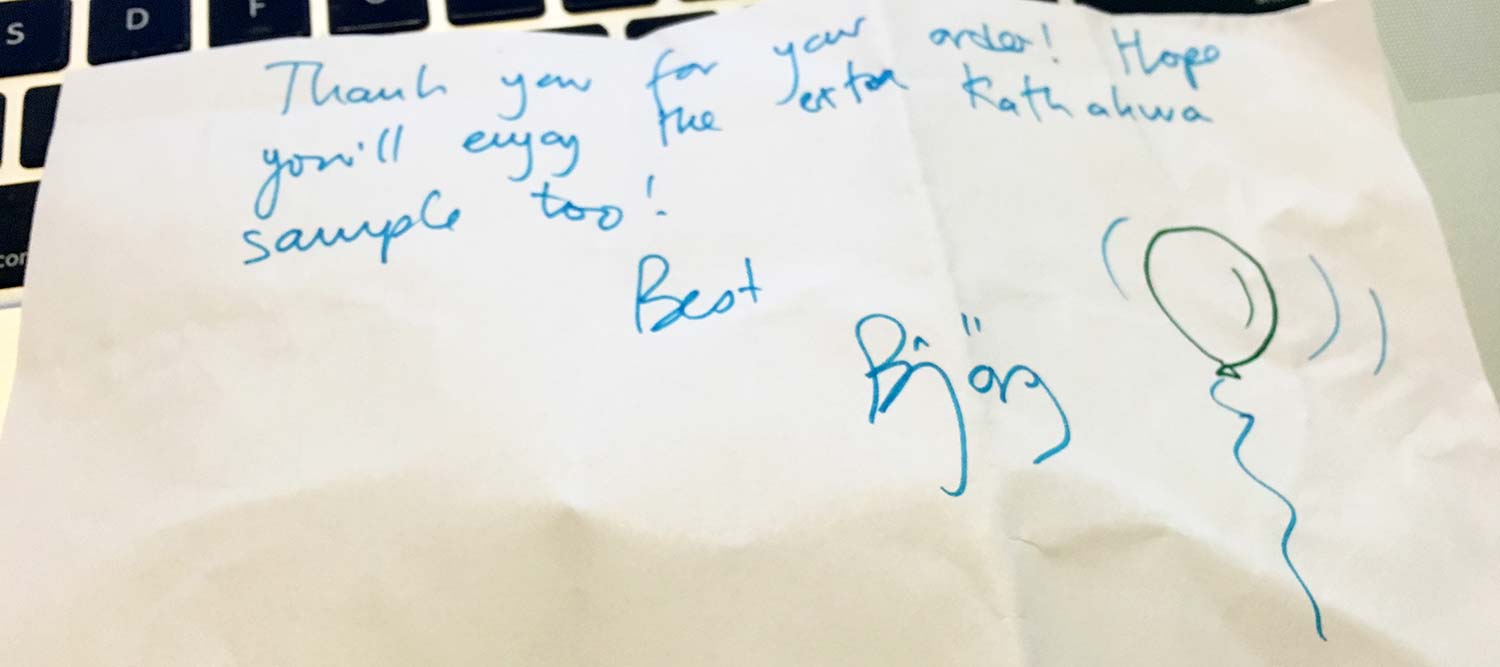 S D F
Thank you for your order! Hope
you'll enjoy the extra Kathakwa
sample too!
Best
Björg